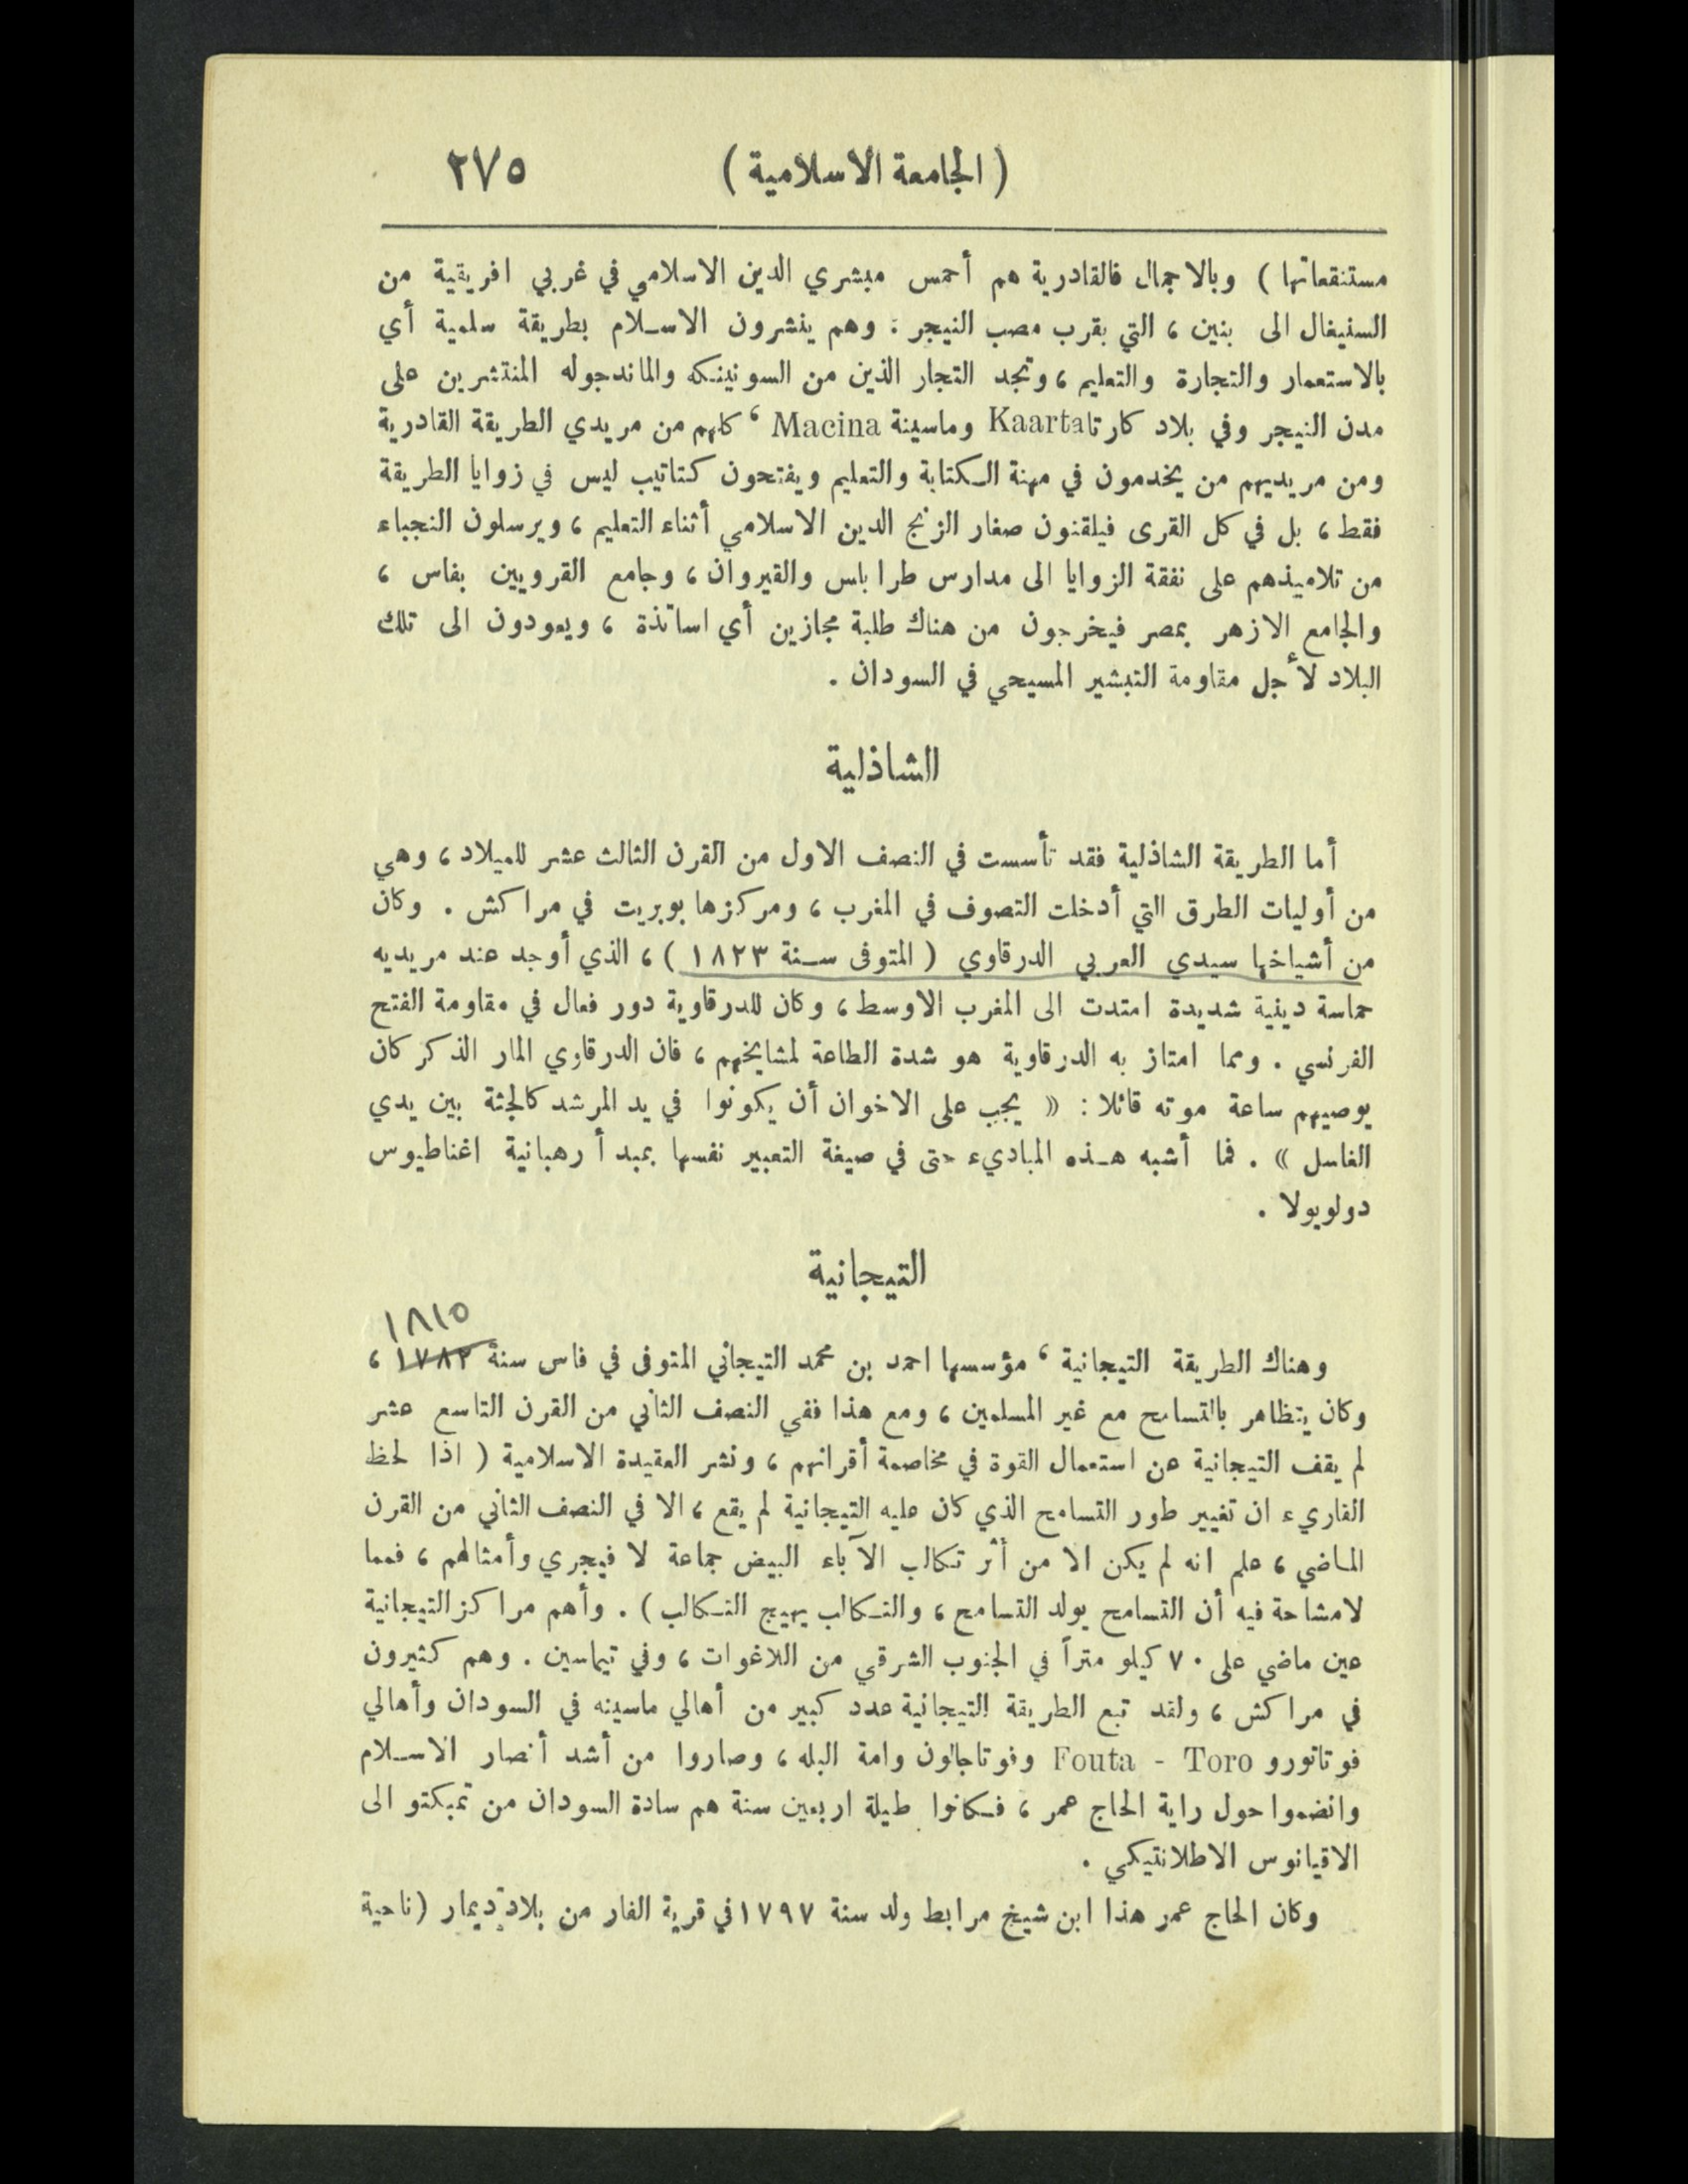 ( الجامعة الاسلامية ) ٢٧٥
مستنقعاتها ) وبالاجمال فالقادرية هم أحمس مبشري الدين الاسلامي في غربي افريقية من
السنيغال الى بنين ، التي بقرب مصب النيجر : وهم ينشرون الاسلام بطريقة سلمية أي
بالاستعمار والتجارة والتعليم ، وتجد التجار الذين من السونينكه والماندجوله المنتشرين على
مدن النيجر وفي بلاد كارتا Kaarta وماسينة Macina ، كلهم من مريدي الطريقة القادرية
ومن مريديهم من يخدمون في مهنة الكتابة والتعليم ويفتحون كتاتيب ليس في زوايا الطريقة
فقط ، بل في كل القرى فيلقنون صغار الزنج الدين الاسلامي أثناء التعليم ، ويرسلون النجباء
من تلاميذهم على نفقة الزوايا الى مدارس طرابلس والقيروان ، وجامع القرويين بفاس ،
والجامع الازهر بمصر فيخرجون من هناك طلبة مجازين أي اساتذة ، ويعودون الى تلك
البلاد لأجل مقاومة التبشير المسيحي في السودان .
الشاذلية
أما الطريقة الشاذلية فقد تأسست في النصف الاول من القرن الثالث عشر للميلاد ، وهي
من أوليات الطرق التي أدخلت التصوف في المغرب ، ومركزها بوبريت في مراكش . وكان
من أشياخها سيدي العربي الدرقاوي ( المتوفى سنة ١٨٢٣ ) ، الذي أوجد عند مريديه
حماسة دينية شديدة امتدت الى المغرب الاوسط ، وكان للدرقاوية دور فعال في مقاومة الفتح
الفرنسي . ومما امتاز به الدرقاوية هو شدة الطاعة لمشايخهم ، فان الدرقاوي المار الذكر كان
يوصيهم ساعة موته قائلا : « يجب على الاخوان أن يكونوا في يد المرشد كالجثة بين يدي
الغاسل » . فما أشبه هذه المباديء حتى في صيغة التعبير نفسها بمبدأ رهبانية اغناطيوس
دولويولا .
التيجانية
١٨١٥
وهناك الطريقة التيجانية ، مؤسسها احمد بن محمد التيجاني المتوفى في فاس سنة ١٧٨٢ ،
وكان يتظاهر بالتسامح مع غير المسلمين ، ومع هذا ففي النصف الثاني من القرن التاسع عشر
لم يقف التيجانية عن استعمال القوة في مخاصمة أقرانهم ، ونشر العقيدة الاسلامية ( اذا لحظ
القاريء ان تغيير طور التسامح الذي كان عليه التيجانية لم يقع ، الا في النصف الثاني من القرن
الماضي ، علم انه لم يكن الا من أثر تكالب الآباء البيض جماعة لا فيجري وأمثالهم ، فمما
لامشاحة فيه أن التسامح يولد التسامح ، والتكالب يهيج التكالب ) . وأهم مراكز التيجانية
عين ماضي على ٧٠ كيلو متراً في الجنوب الشرقي من اللاغوات ، وفي تيماسين . وهم كثيرون
في مراكش ، ولقد تبع الطريقة التيجانية عدد كبير من أهالي ماسينه في السودان وأهالي
فوتاتورو Fouta - Toro وفوتاجالون وامة البله ، وصاروا من أشد أنصار الاسلام
وانضموا حول راية الحاج عمر ، فكانوا طيلة اربعين سنة هم سادة السودان من تمبكتو الى
الاقيانوس الاطلانتيكي .
وكان الحاج عمر هذا ابن شيخ مرابط ولد سنة ١٧٩٧ في قرية الفار من بلاد ديمار ( ناحية